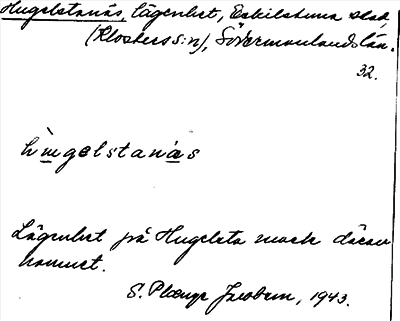 Hugelstanäs, lägenhet, Eskilstuna stad,
(Klosters s:n), Södermanlands län.
32.
hùgelstanä̀s
Lägenhet på Hugelsta mark därav
namnet.
S. Plænge Jacobson, 1943.